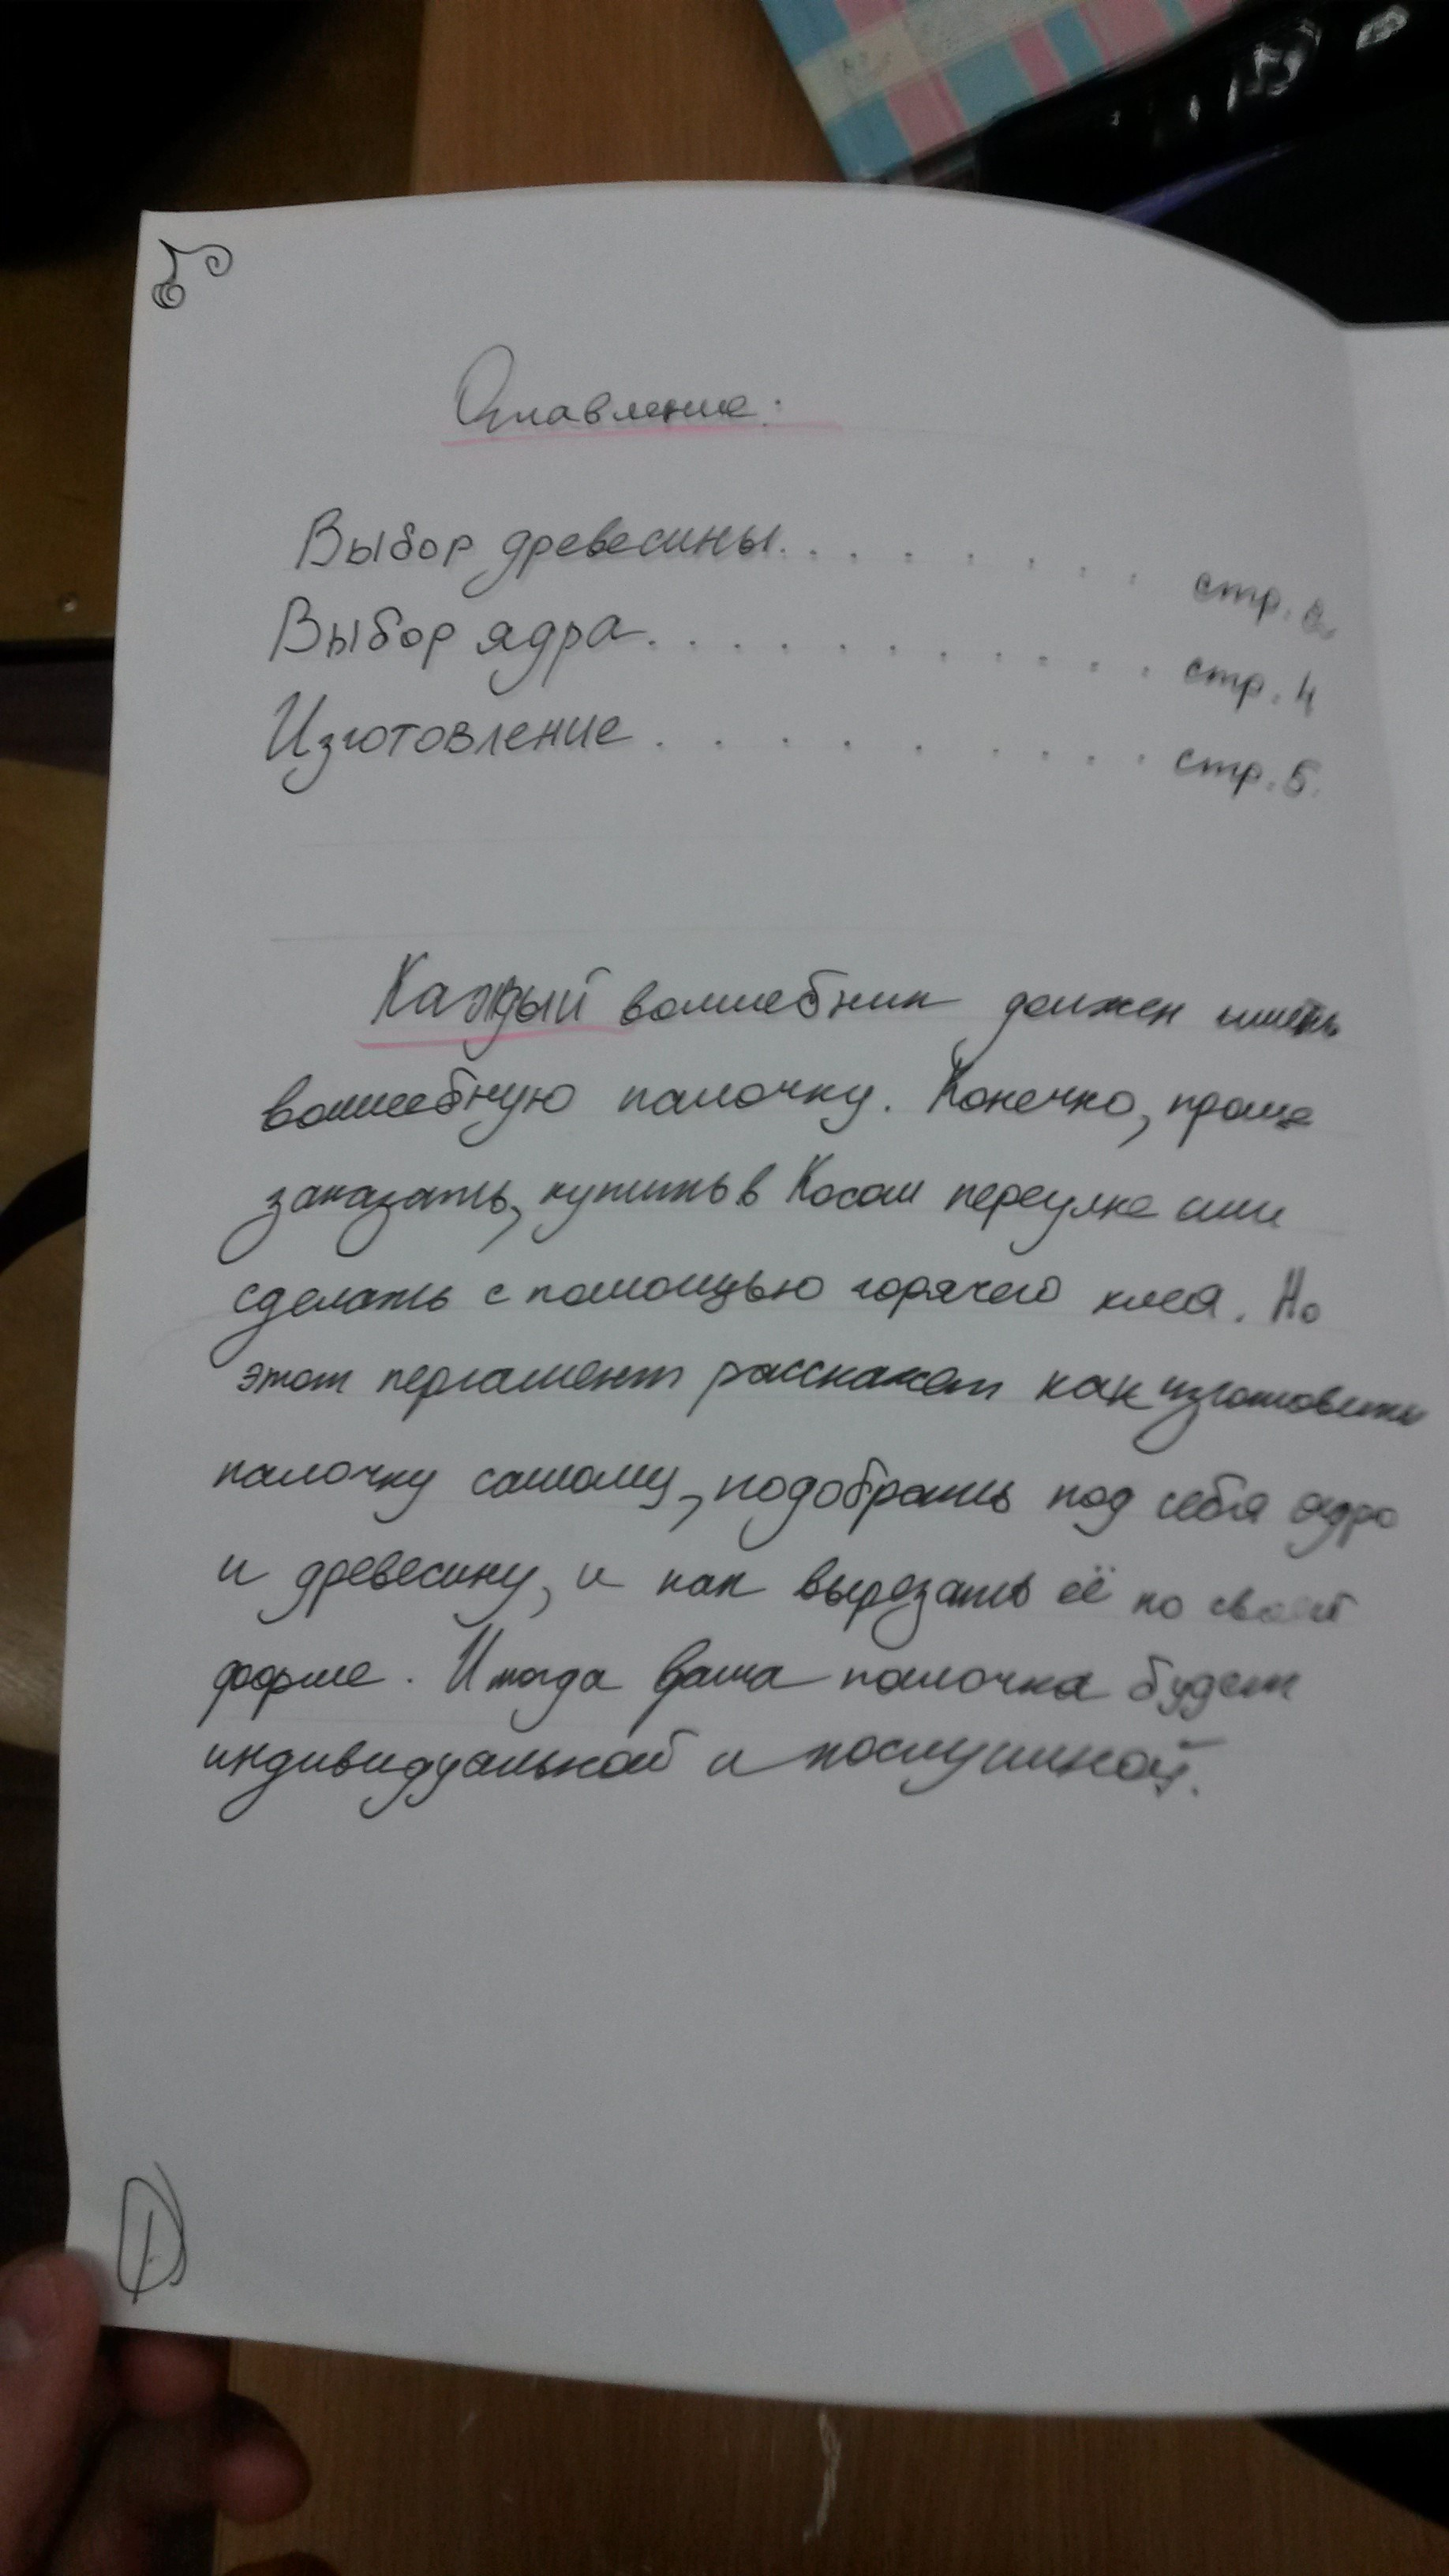 Оглавление:
Выбор древесины. . . . . . . . стр. 2
Выбор ядра. . . . . . . . . . . . стр. 4
Изготовление . . . . . . . . . . стр. 5.
Каждый волшебник должен иметь
волшебную палочку. Конечно, проще
заказать, купить в Косом переулке или
сделать с помощью горячего клея. Но
этот пергамент расскажет как изготовить
палочку самому, подобрать под себя ядро
и древесину, и как вырезать её по своей
форме. И тогда ваша палочка будет
индивидуальной и послушной.
1